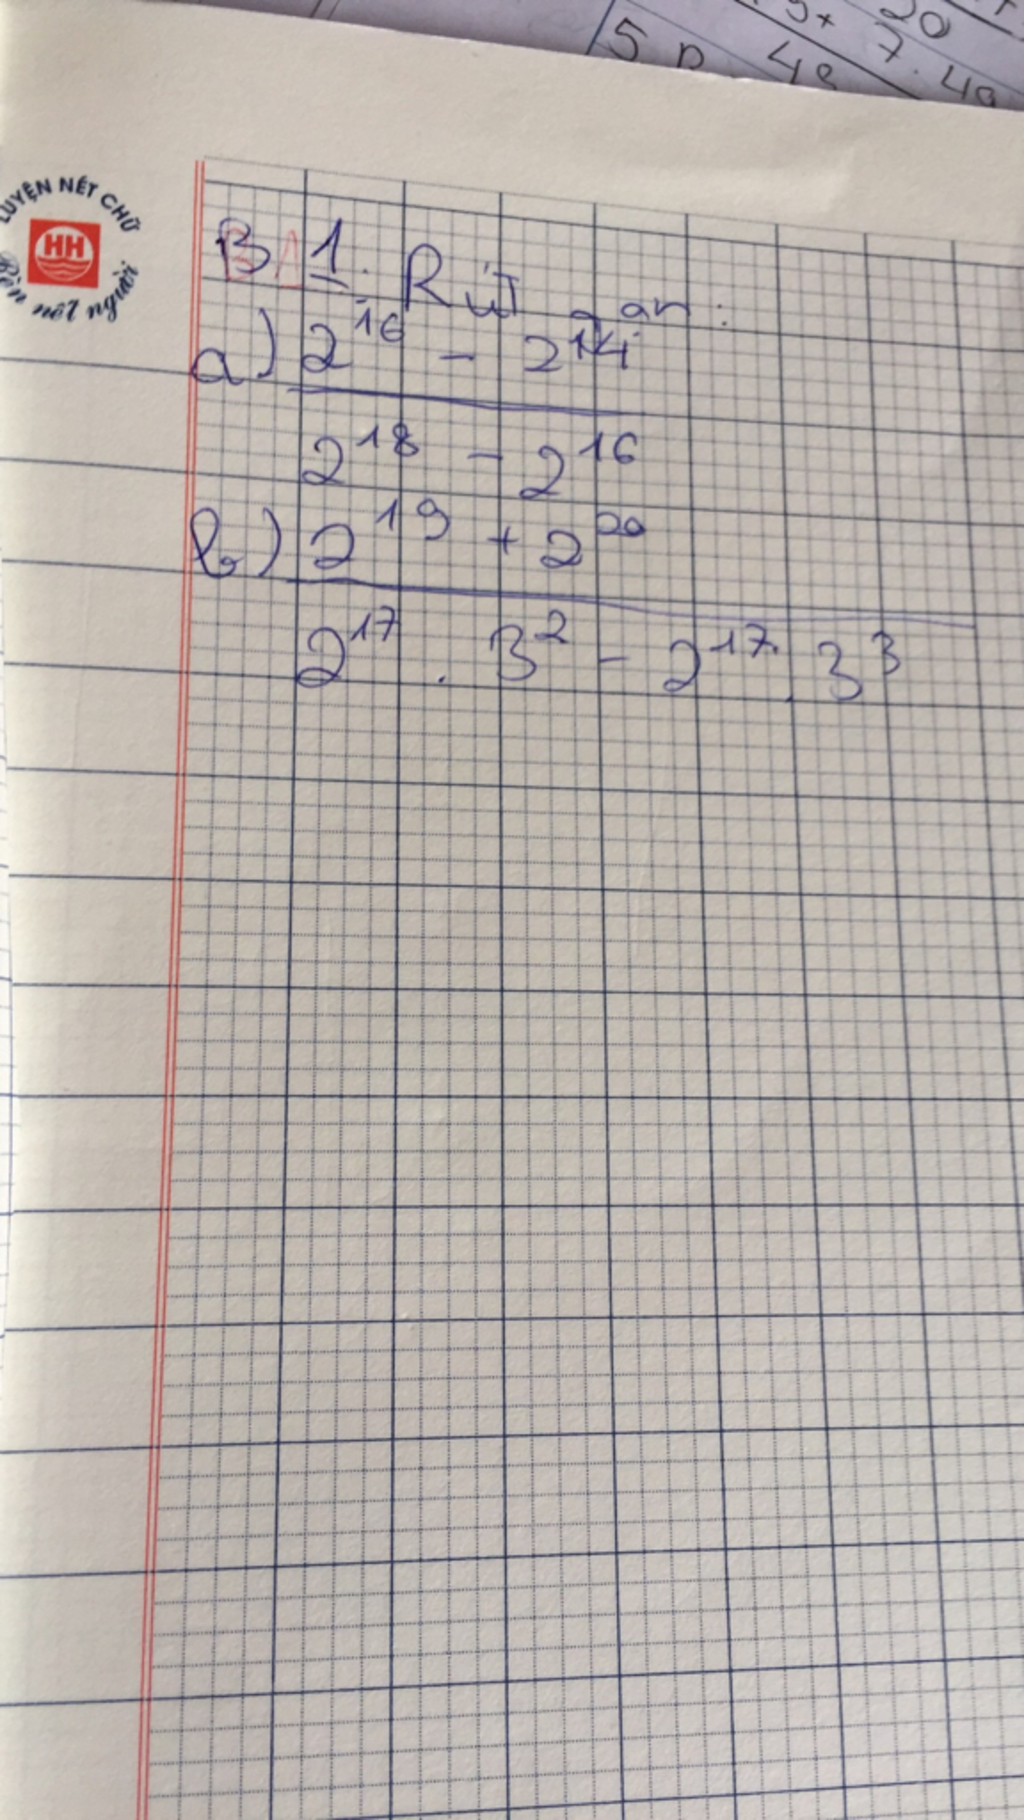 5 p 48
20
7.49
LUYỆN NÉT CHỮ
HH
Rèn nết người
B 1. Rút gọn:
a) 2^16 - 2^14
2^18 - 2^16
b) 2^19 + 2^20
2^17 . 3^2 - 2^17 . 3^3